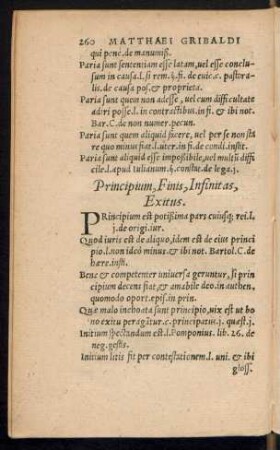 260 MATTHAEI GRIBALDI
qui pœne. de manumiss.
Paria sunt sententiam esse latam, uel esse conclu-
sum in causa. l. si rem. §. fi. de euic. &c. pastora-
lis. de causa pos. & proprieta.
Paria sunt quem non adesse, uel cum difficultate
adiri posse. l. in contractibus. in fi. & ibi not.
Bar. C. de non numer. pecun.
Paria sunt quem aliquid facere, uel per se non sta
re quo minus fiat. l. iure. in fi. de condi. instit.
Paria sunt aliquid esse impossibile, uel multū diffi
cile. l. apud Iulianum. §. constat. de lega. j.
Principium, Finis, Infinitas,
Exitus.
PRincipium est potissima pars cuiusq; rei. l.
j. de origi. iur.
Quod iuris est de aliquo, idem est de eius princi
pio. l. non ideo minus. & ibi not. Bartol. C. de
hære. insti.
Bene & competenter uniuersa geruntur, si prin
cipium decens fiat, & amabile deo. in authen.
quomodo oport. epis. in prin.
Quæ malo inchoata sunt principio, uix est ut bo
no exitu peragātur. c. principatus. j. quæst. j.
Initium spectandum est. l. Pomponius. lib. 26. de
neg. gestis.
Initium litis fit per contestationem. l. uni. & ibi
gloss.